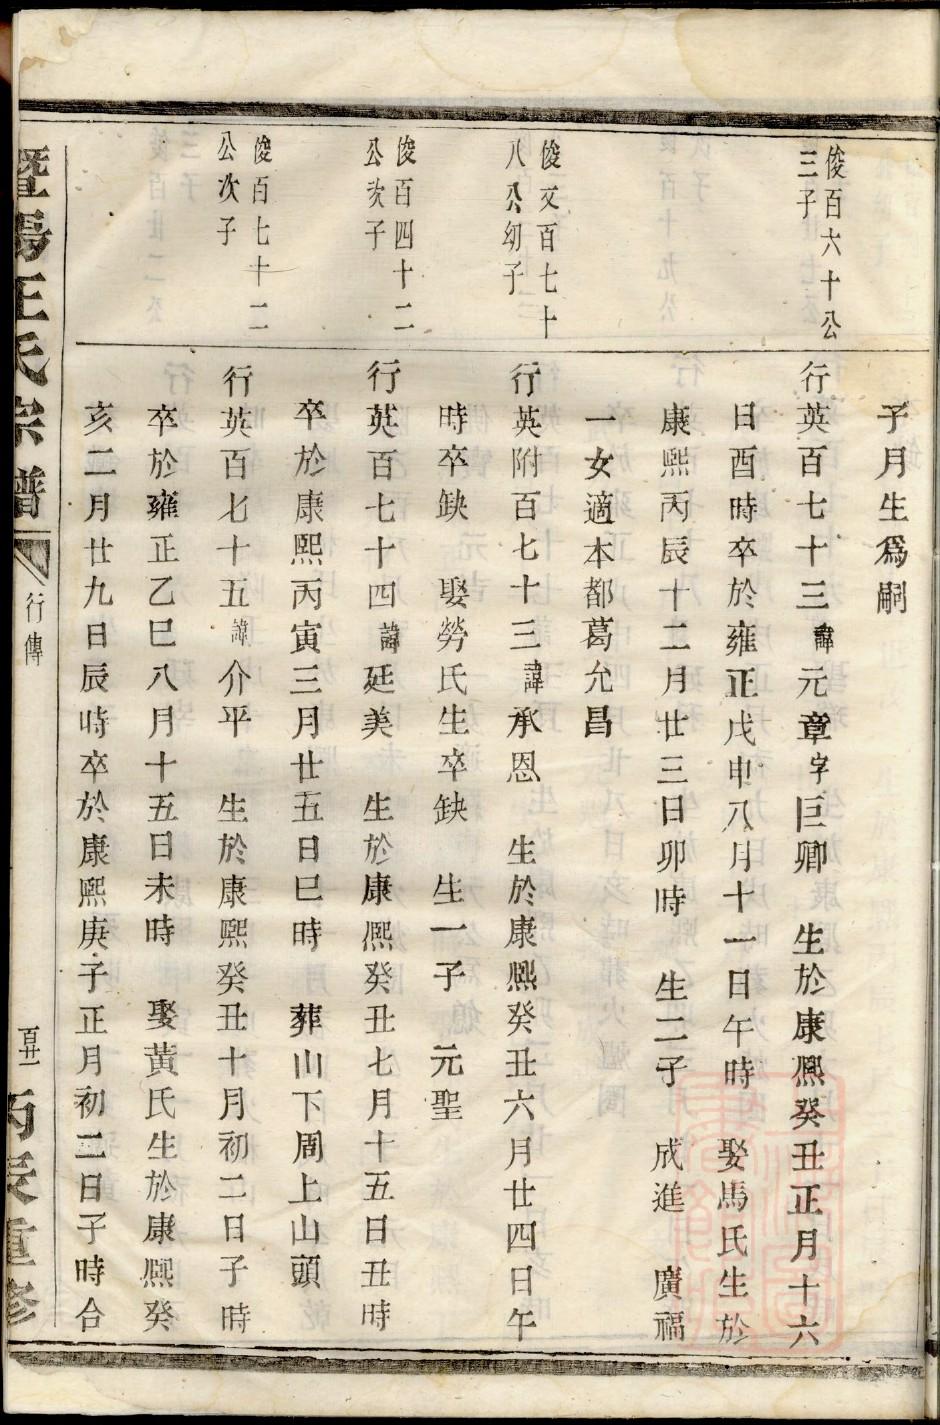 子月生為嗣
俊百六十公
三子
行英百七十三諱元章字巨卿 生於康熈癸丑正月十六
日酉時卒於雍正戊申八月十一日午時 娶馬氏生於
康熈丙辰十二月廿三日卯時 生二子 成進 廣福
一女適本都葛允昌
俊交百七十
八公幼子
行英附百七十三諱承恩 生於康熈癸丑六月廿四日午
時卒缺 娶勞氏生卒缺 生一子 元聖
俊百四十二
公次子
行英百七十四諱廷美 生於康熈癸丑七月十五日丑時
卒於康熈丙寅三月廿五日巳時 葬山下周上山頭
俊百七十二
公次子
行英百七十五諱介平 生於康熈癸丑十月初二日子時
卒於雍正乙巳八月十五日未時 娶黃氏生於康熈癸
亥二月廿九日辰時卒於康熈庚子正月初二日子時合
暨陽王氏宗譜 行傳 百廿一 丙辰重修